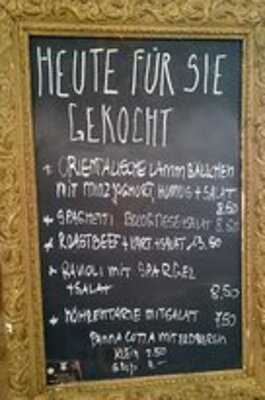 HEUTE FÜR SIE
GEKOCHT
ORIENTALISCHE LAMM BÄLLCHEN
MIT MINZJOGHURT, HUMUS + SALAT
8.50
SPAGHETTI BOLOGNESE + SALAT 8,50
ROASTBEEF + KART. + SALAT 13.50
RAVIOLI MIT SPARGEL
+ SALAT 8,50
MÖHRENTARTE MIT SALAT 7,50
PANNA COTTA MIT ERDBEEREN
KLEIN 2.50